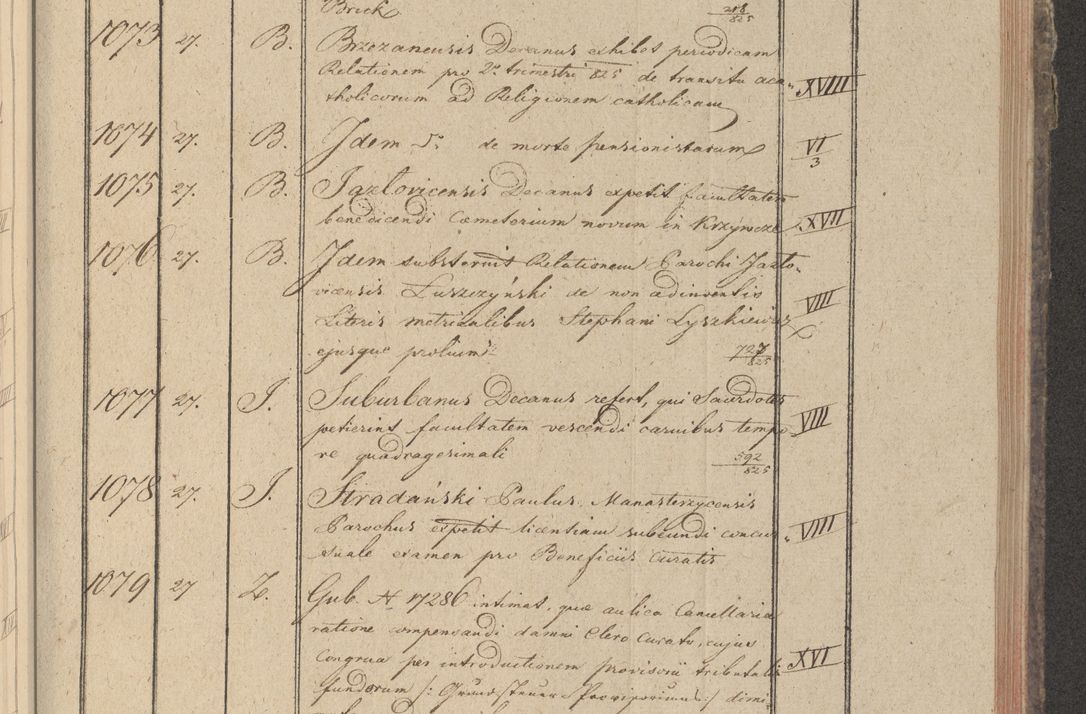 Brick 218/825
1073 27. B. Brzezanensis Decanus exhibet periodicam
Relationem pro 2º trimestri 825 de transitu aca=
tholicorum ad Religionem catholicam XVIII
1074 27. B. Idem de morte pensionistarum VI/3
1075 27. B. Jazlovicensis Decanus expetit facultatem
benedicendi Cœmeterium novum in Krzywcze XVII
1076 27. B. Idem substernit Relationem Parochi Jazlo-
vicensis Łuszczyński de non adinventis
Literis metricalibus Stephani Lyszkiewicz VIII
ejusque prolium 727/825
1077 27. J. Suburbanus Decanus refert, qui Sacerdotes
petierint facultatem vescendi carnibus tempo VIII
re quadragesimali 592/825
1078 27. J. Stradański Paulus Manasterzycensis
Parochus expetit licentiam subeundi concur VIII
suale examen pro Beneficiis Curatis
1079 27 Z. Gub. N 17286 intimat, quæ aulica Cancellaria
ratione compensandi damni Clero Curato, cujus
Congrua per introductionem provisorii tributalis XVI
fundorum /: Grund Steuer Provisoriums :/ dimi-